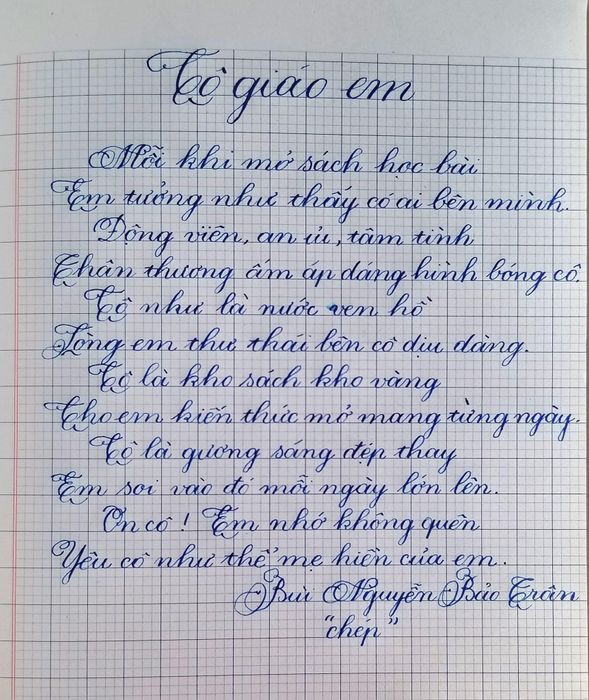 Cô giáo em
Mỗi khi mở sách học bài
Em tưởng như thấy có ai bên mình.
Động viên, an ủi, tâm tình
Thân thương ấm áp dáng hình bóng cô.
Cô như là nước ven hồ
Lòng em thư thái bên cô dịu dàng.
Cô là kho sách kho vàng
Cho em kiến thức mở mang từng ngày.
Cô là gương sáng đẹp thay
Em soi vào đó mỗi ngày lớn lên.
Ơn cô! Em nhớ không quên
Yêu cô như thể mẹ hiền của em.
Bùi Nguyễn Bảo Trân
"chép"